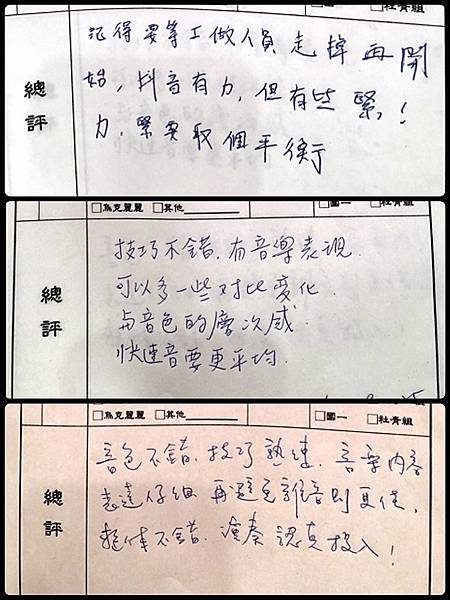 社青組
總評
記得要等工做人員走掉再開
始，抖音有力，但有些緊！
力，緊要取個平衡
□烏克麗麗 □其他 □國一 □社青組
總評
技巧不錯.有音樂表現.
可以多一些对比变化
与音色的層次感.
快速音要更平均.
□烏克麗麗 □其他 □國一 □社青組
總評
音色不錯.技巧熟速.音樂内容
表達仔細 再避免雜音則更佳,
整体不錯.演奏認真投入!